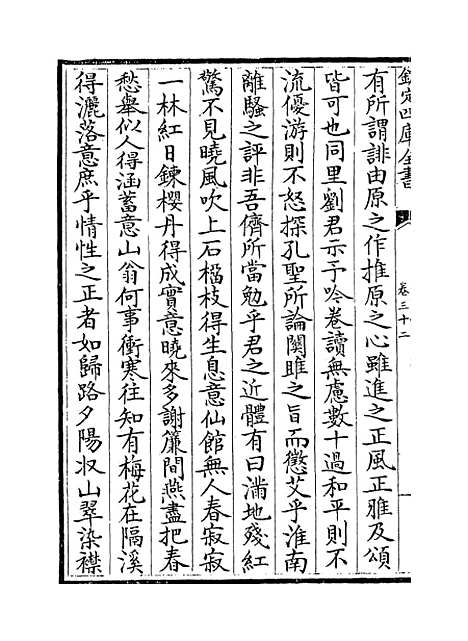 欽定四庫全書
卷三十二
有所謂誹由原之作推原之心雖進之正風正雅及頌
皆可也同里劉君示予吟卷讀無慮數十過和平則不
流優游則不怒探孔聖所論關雎之旨而懲艾乎淮南
離騷之評非吾儕所當勉乎君之近體有曰滿地殘紅
驚不見曉風吹上石橊枝得生息意仙館無人春寂寂
一林紅日鍊櫻丹得成實意曉來多謝簾間燕盡把春
愁舉似人得涵蓄意山翁何事衝寒往知有梅花在隔溪
得灑落意庶乎情性之正者如歸路夕陽収山翠染襟